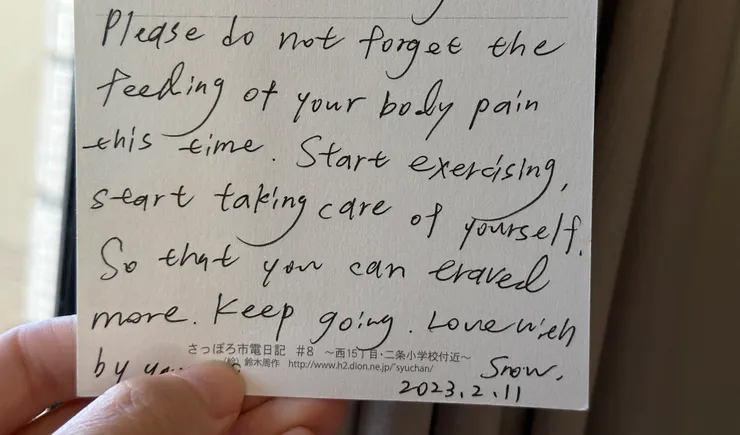 Please do not forget the
feeding of your body pain
this time. Start exercising,
start taking care of yourself.
So that you can traved
more. Keep going. Love wish
by
さっぽろ市電日記 #8 ～西15丁目・二条小学校付近～
(絵) 鈴木周作 http://www.h2.dion.ne.jp/~syuchan/
Snow.
2023.2.11